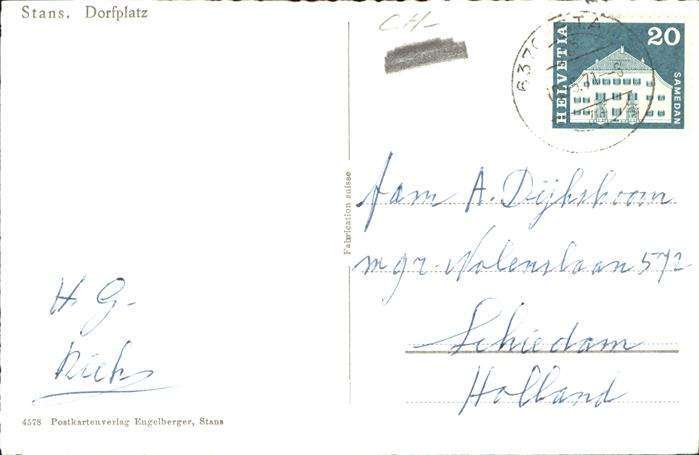 Stans. Dorfplatz
CH-
HELVETIA
20
SAMEDAN
Fabrication suisse
fam A. Dijksboom
mgr. Nolenslaan 572
Schiedam
Holland
H. G.
4578 Postkartenverlag Engelberger, Stans